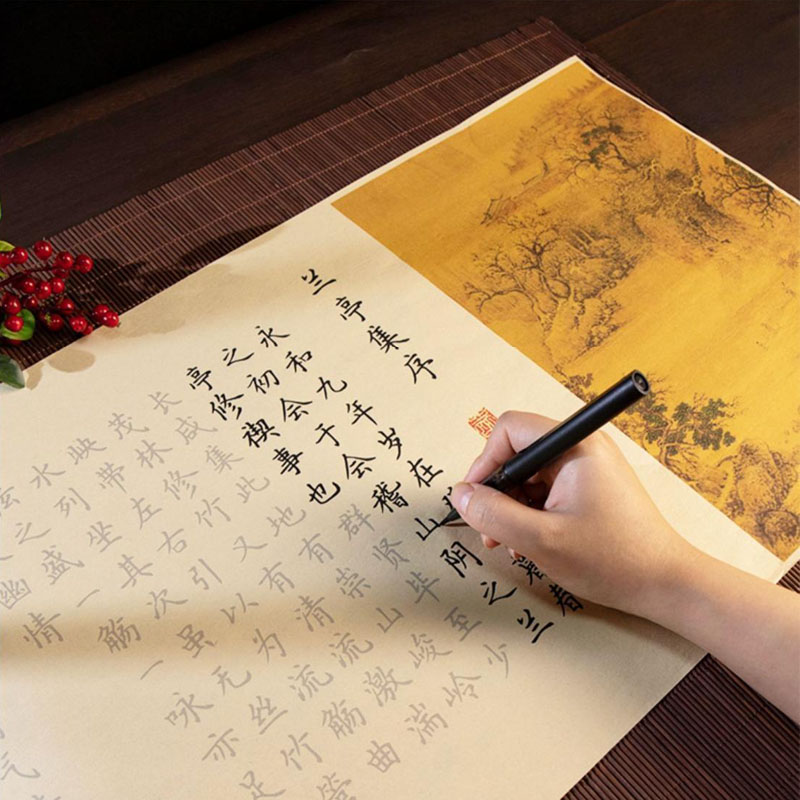 兰亭集序
永和九年岁在
暮春
之初会于会稽山阴之兰
亭修禊事也群贤毕至少
长咸集此地有崇山峻岭
茂林修竹又有清流激湍
映带左右引以为流觞曲
水列坐其次虽无丝竹管
弦之盛一觞一咏亦足
幽情
气